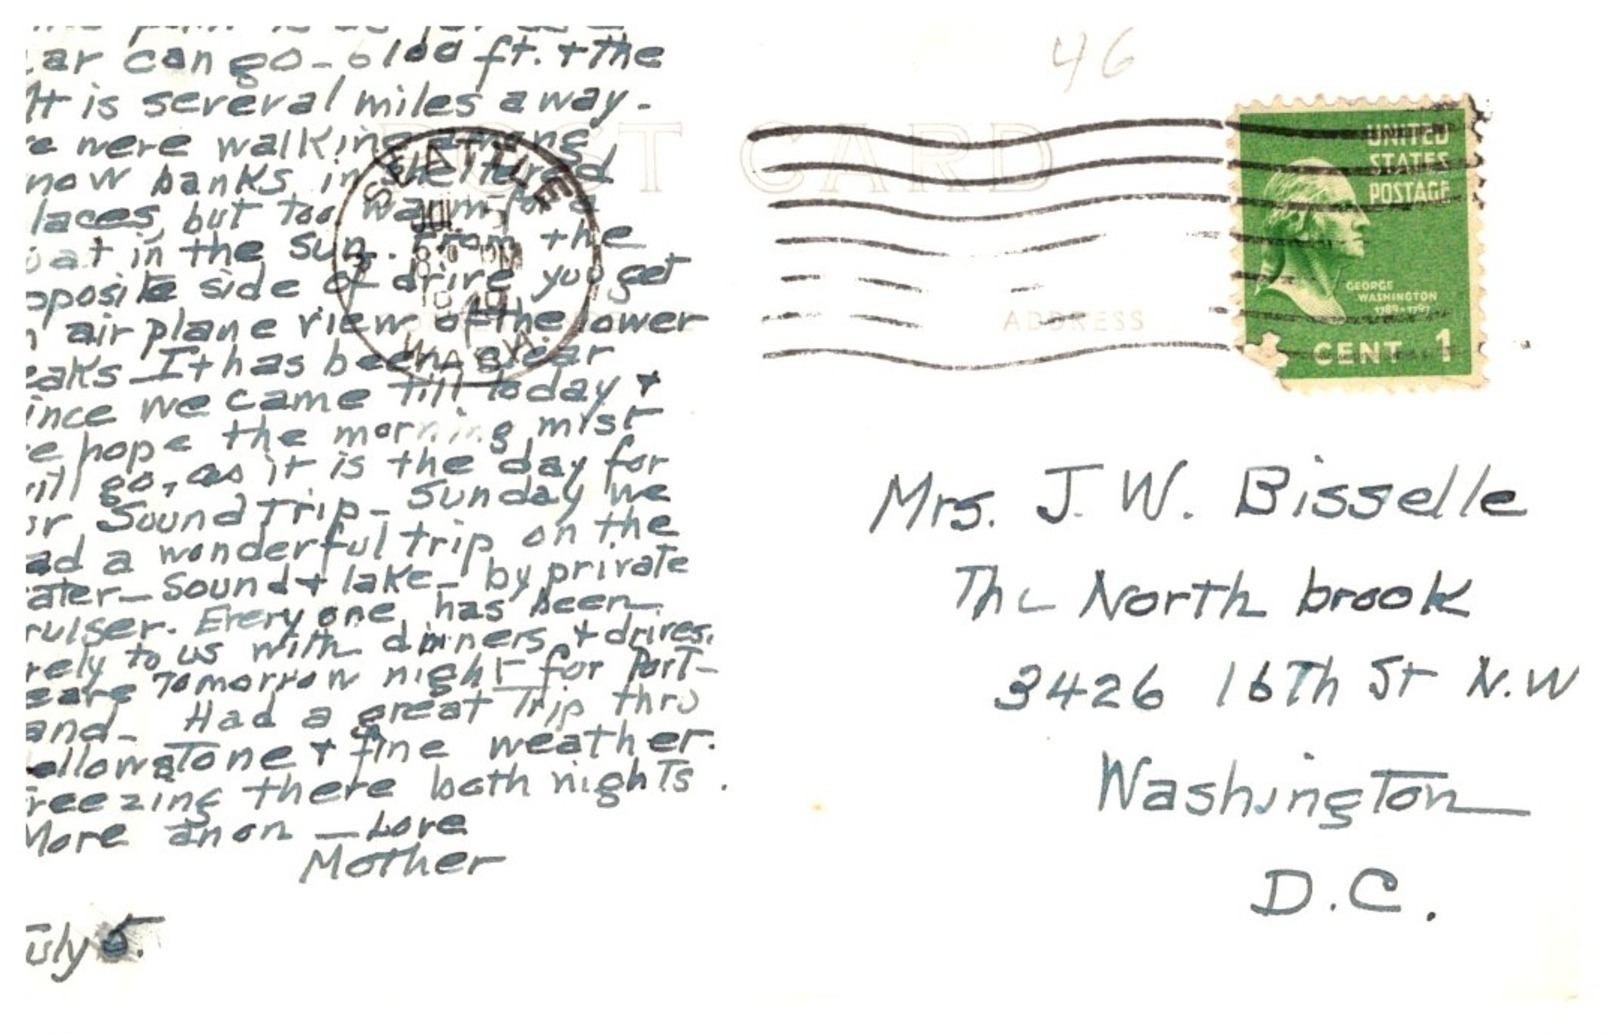 ar can go - 6100 ft. + the
It is several miles away.
e were walking among
now banks in sheltered
laces, but too warm for a
oat in the sun. From the
pposite side of drive you get
n airplane view of the lower
eaks - It has been clear
ince we came till today +
e hope the morning mist
ill go, as it is the day for
ur Sound Trip - Sunday we
ad a wonderful trip on the
ater - Sound + lake - by private
ruiser. Every one has been
rely to us with dinners + drives.
eave Tomorrow night for Port-
and - Had a great Trip thru
ellowstone + fine weather.
reezing there both nights.
More anon - Love
Mother
uly 5.
46
POST CARD
SEATTLE
JUL
PM
WASH.
ADDRESS
UNITED
STATES
POSTAGE
GEORGE
WASHINGTON
1789-1797
CENT 1
Mrs. J. W. Bisselle
The North brook
3426 16Th St N.W
Washington
D.C.